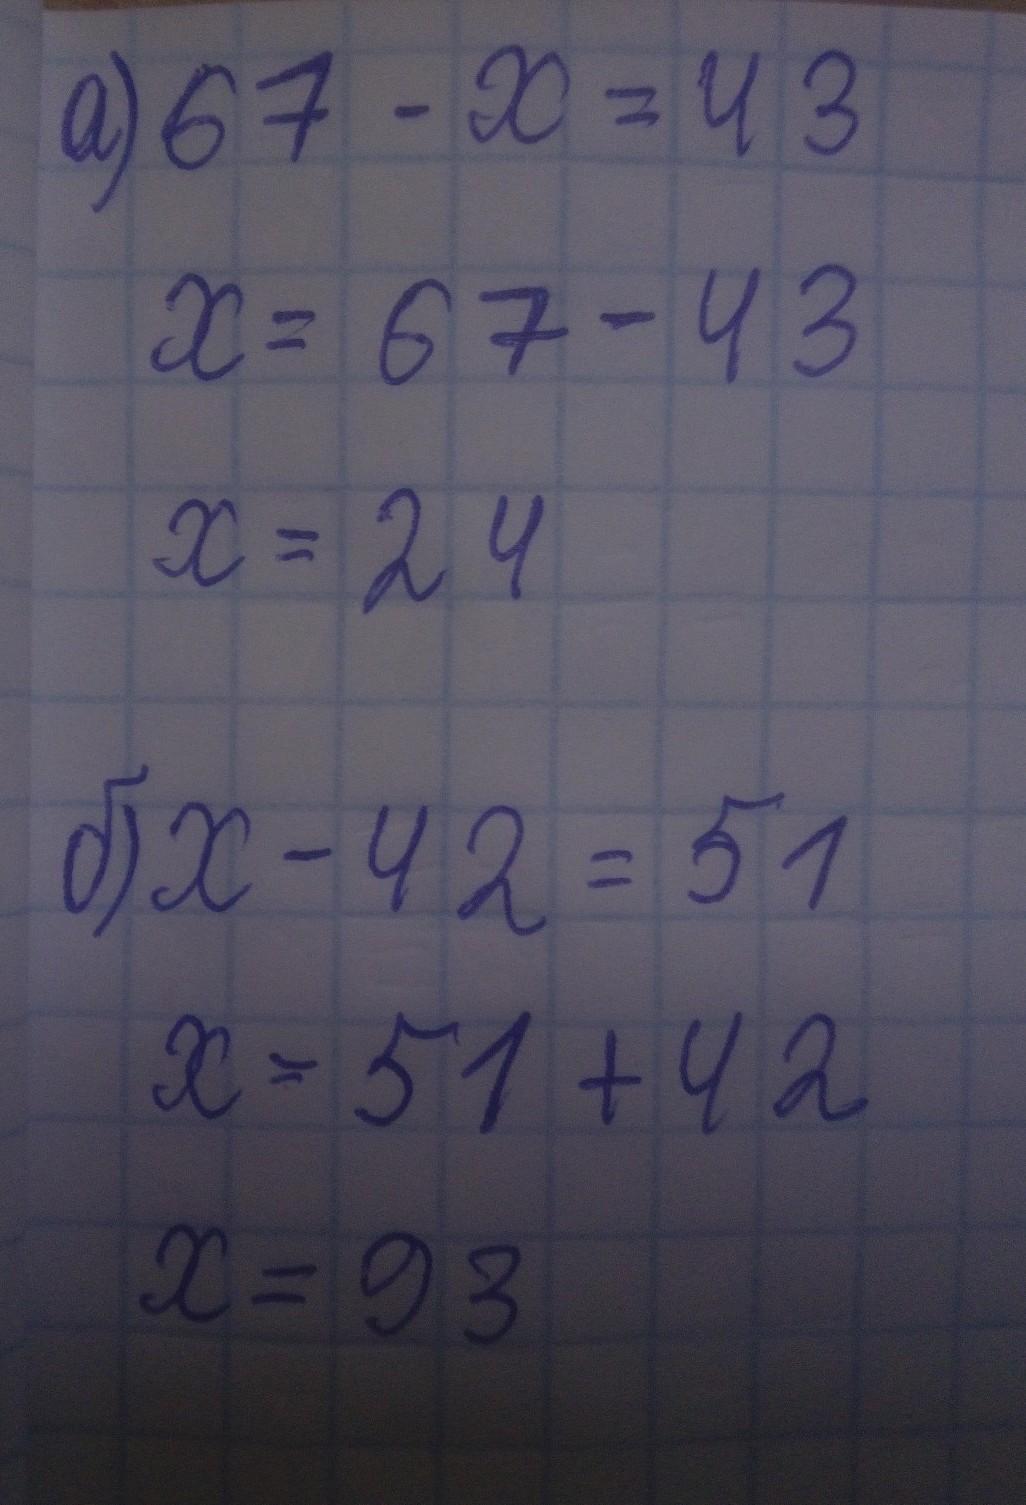 а) 67 - x = 43
x = 67 - 43
x = 24
б) x - 42 = 51
x = 51 + 42
x = 93